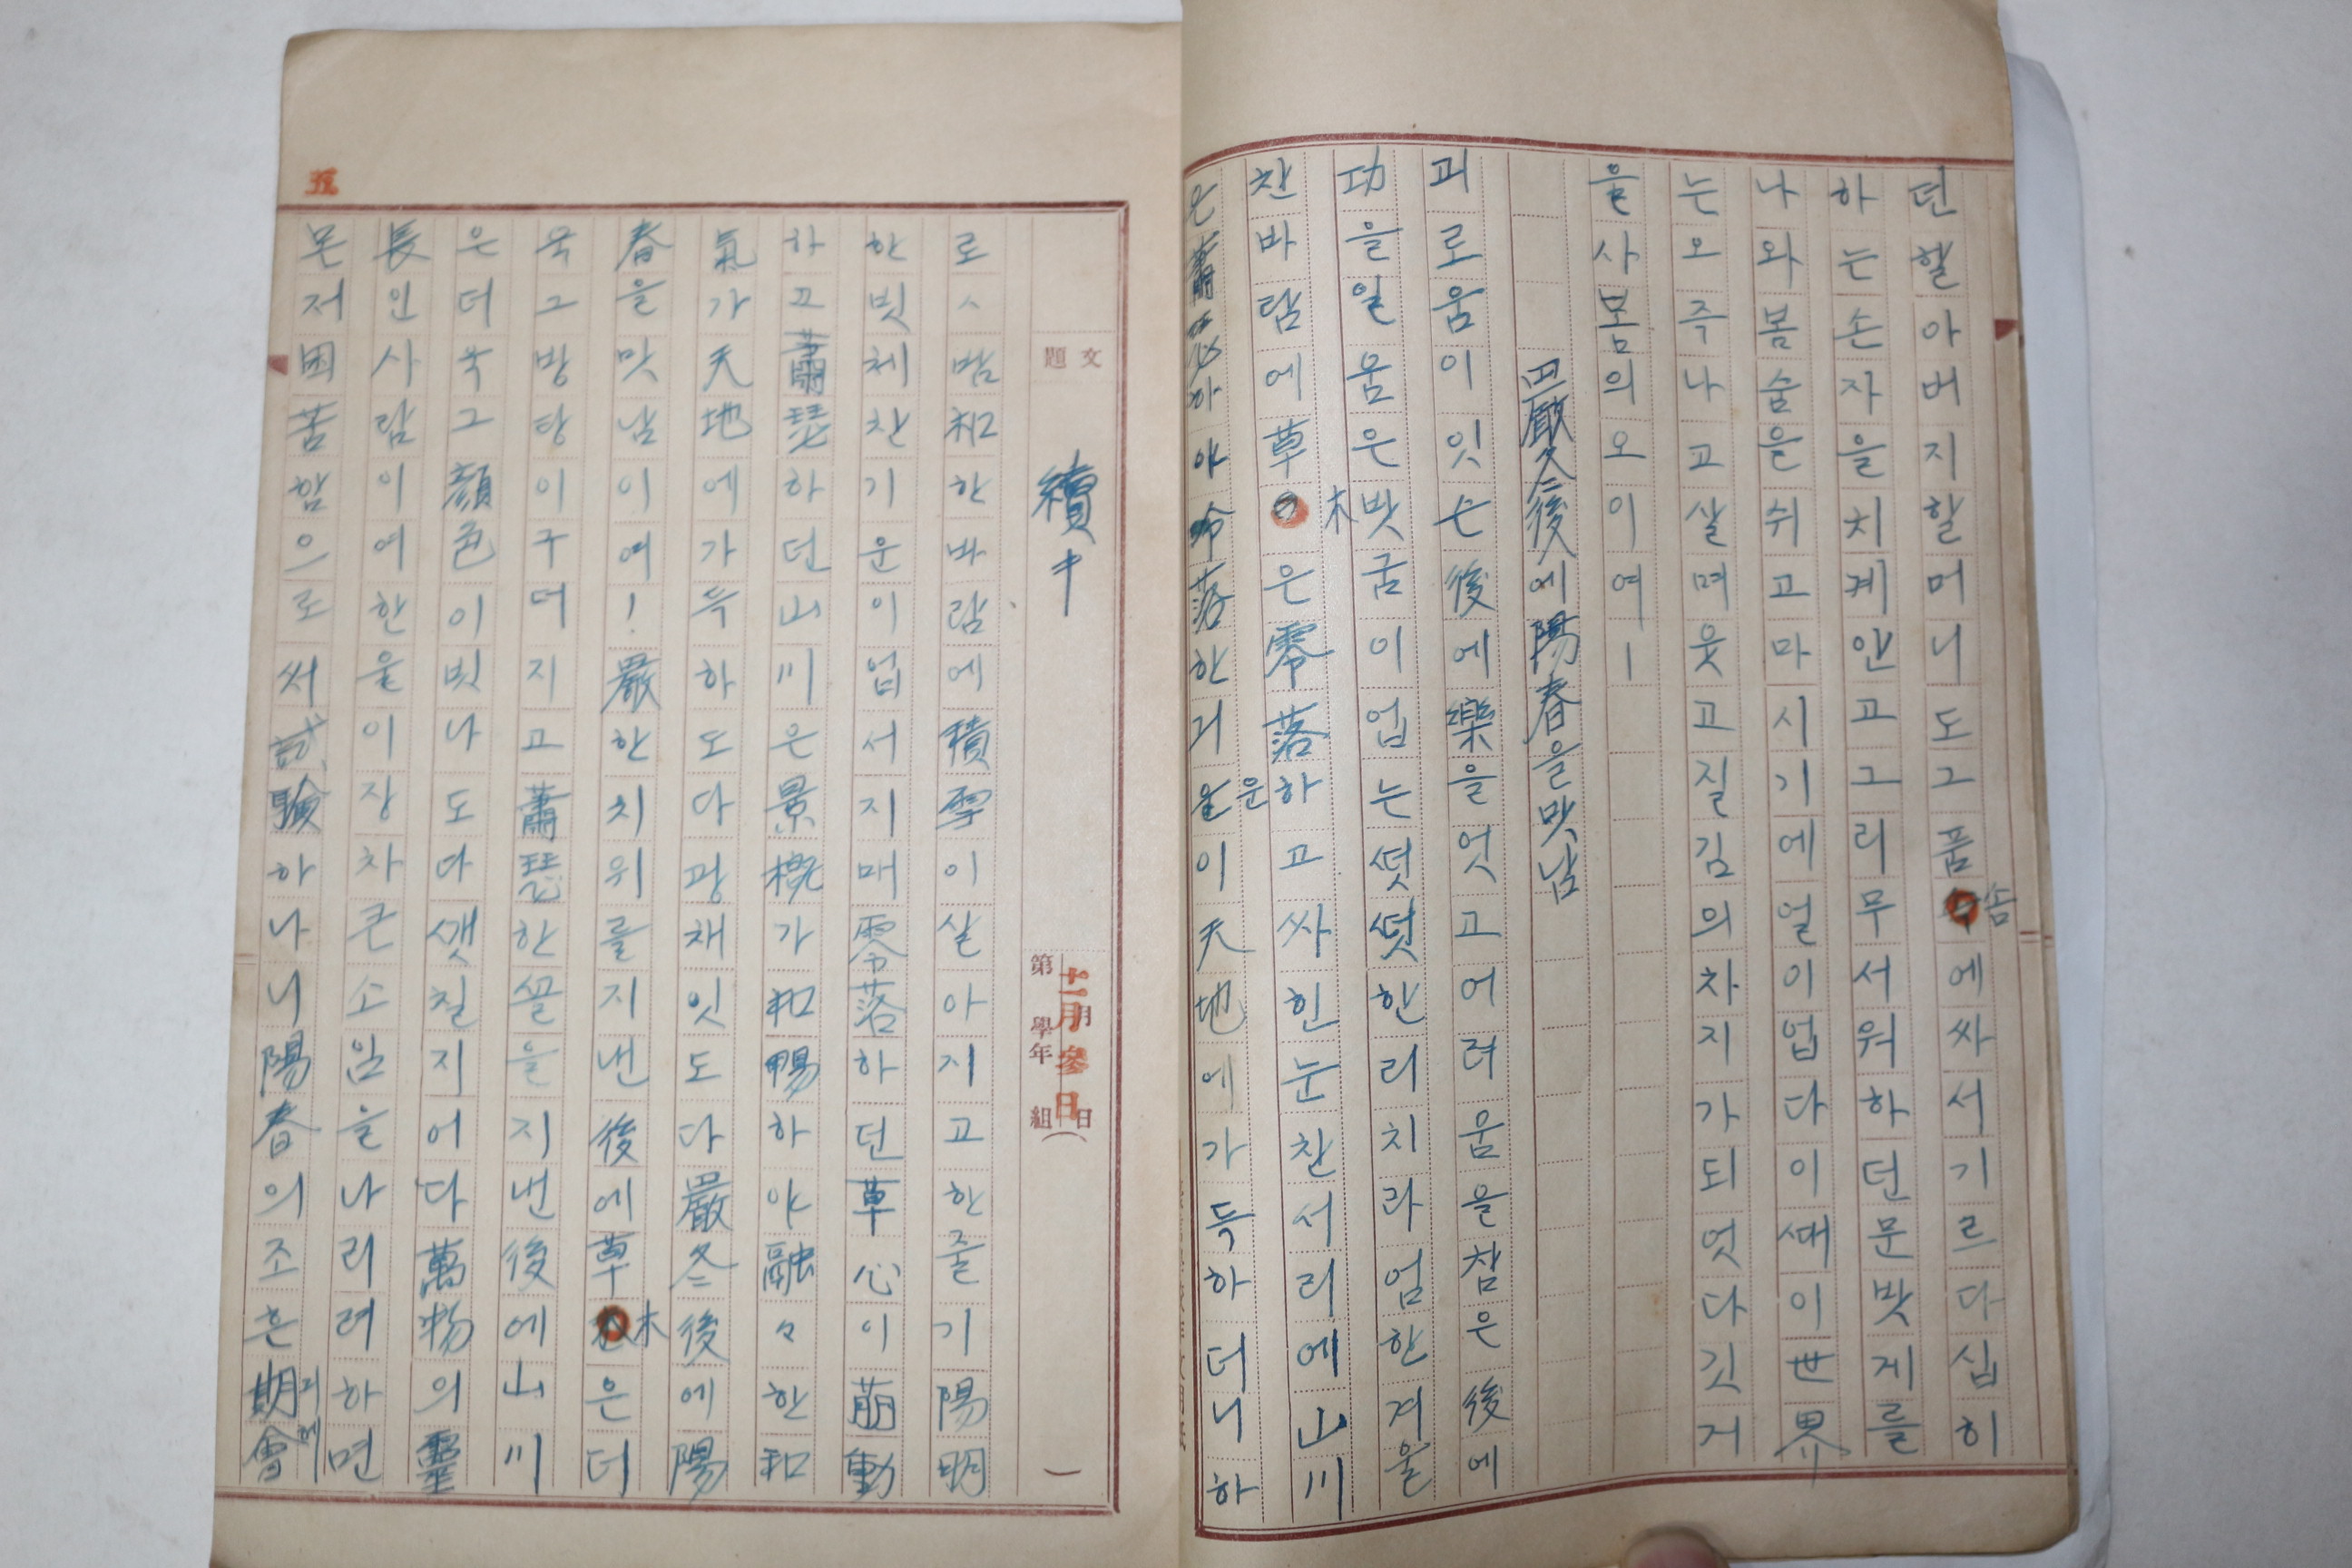 던헬아버지할머니도그품솜에싸서기르다십히
하는손자을치계안고그리무서워하던문밧게를
나와봄숨을쉬고마시기에얼이업다이ᄯᅢ이世界
는오즉나고살며웃고질김의차지가되엿다깃거
을사봄의오이여ㅣ
四嚴冬後에陽春을맛남
괴로움이잇는後에樂을엇고어려움을참은後에
功을일움은밧굼이업는ᄯᅥᆺᄯᅥᆺ한리치라엄한겨울
찬바람에草木은零落하고싸힌눈찬서리에山川
은蕭瑟하야冷落한긔운이天地에가득하더니하
文題
續キ
第 學年 組
十二月 參日
月 日
로ㅅ밤和한바람에積雪이살아지고한줄기陽明
한빗체찬기운이업서지매零落하던草心이萠動
하고蕭瑟하던山川은景槪가和暢하야融々한和
氣가天地에가득하도다광채잇도다嚴冬後에陽
春을맛남이여!嚴한치위를지낸後에草木은더
욱그방탕이구더지고蕭瑟한꼴을지낸後에山川
은더욱그顔色이빗나도다ᄭᅢᆺ칠지어다萬物의靈
長인사람이여한울이장차큰소임을나리려하면
몬저困苦함으로써試驗하나니陽春의조흔期會
긔회